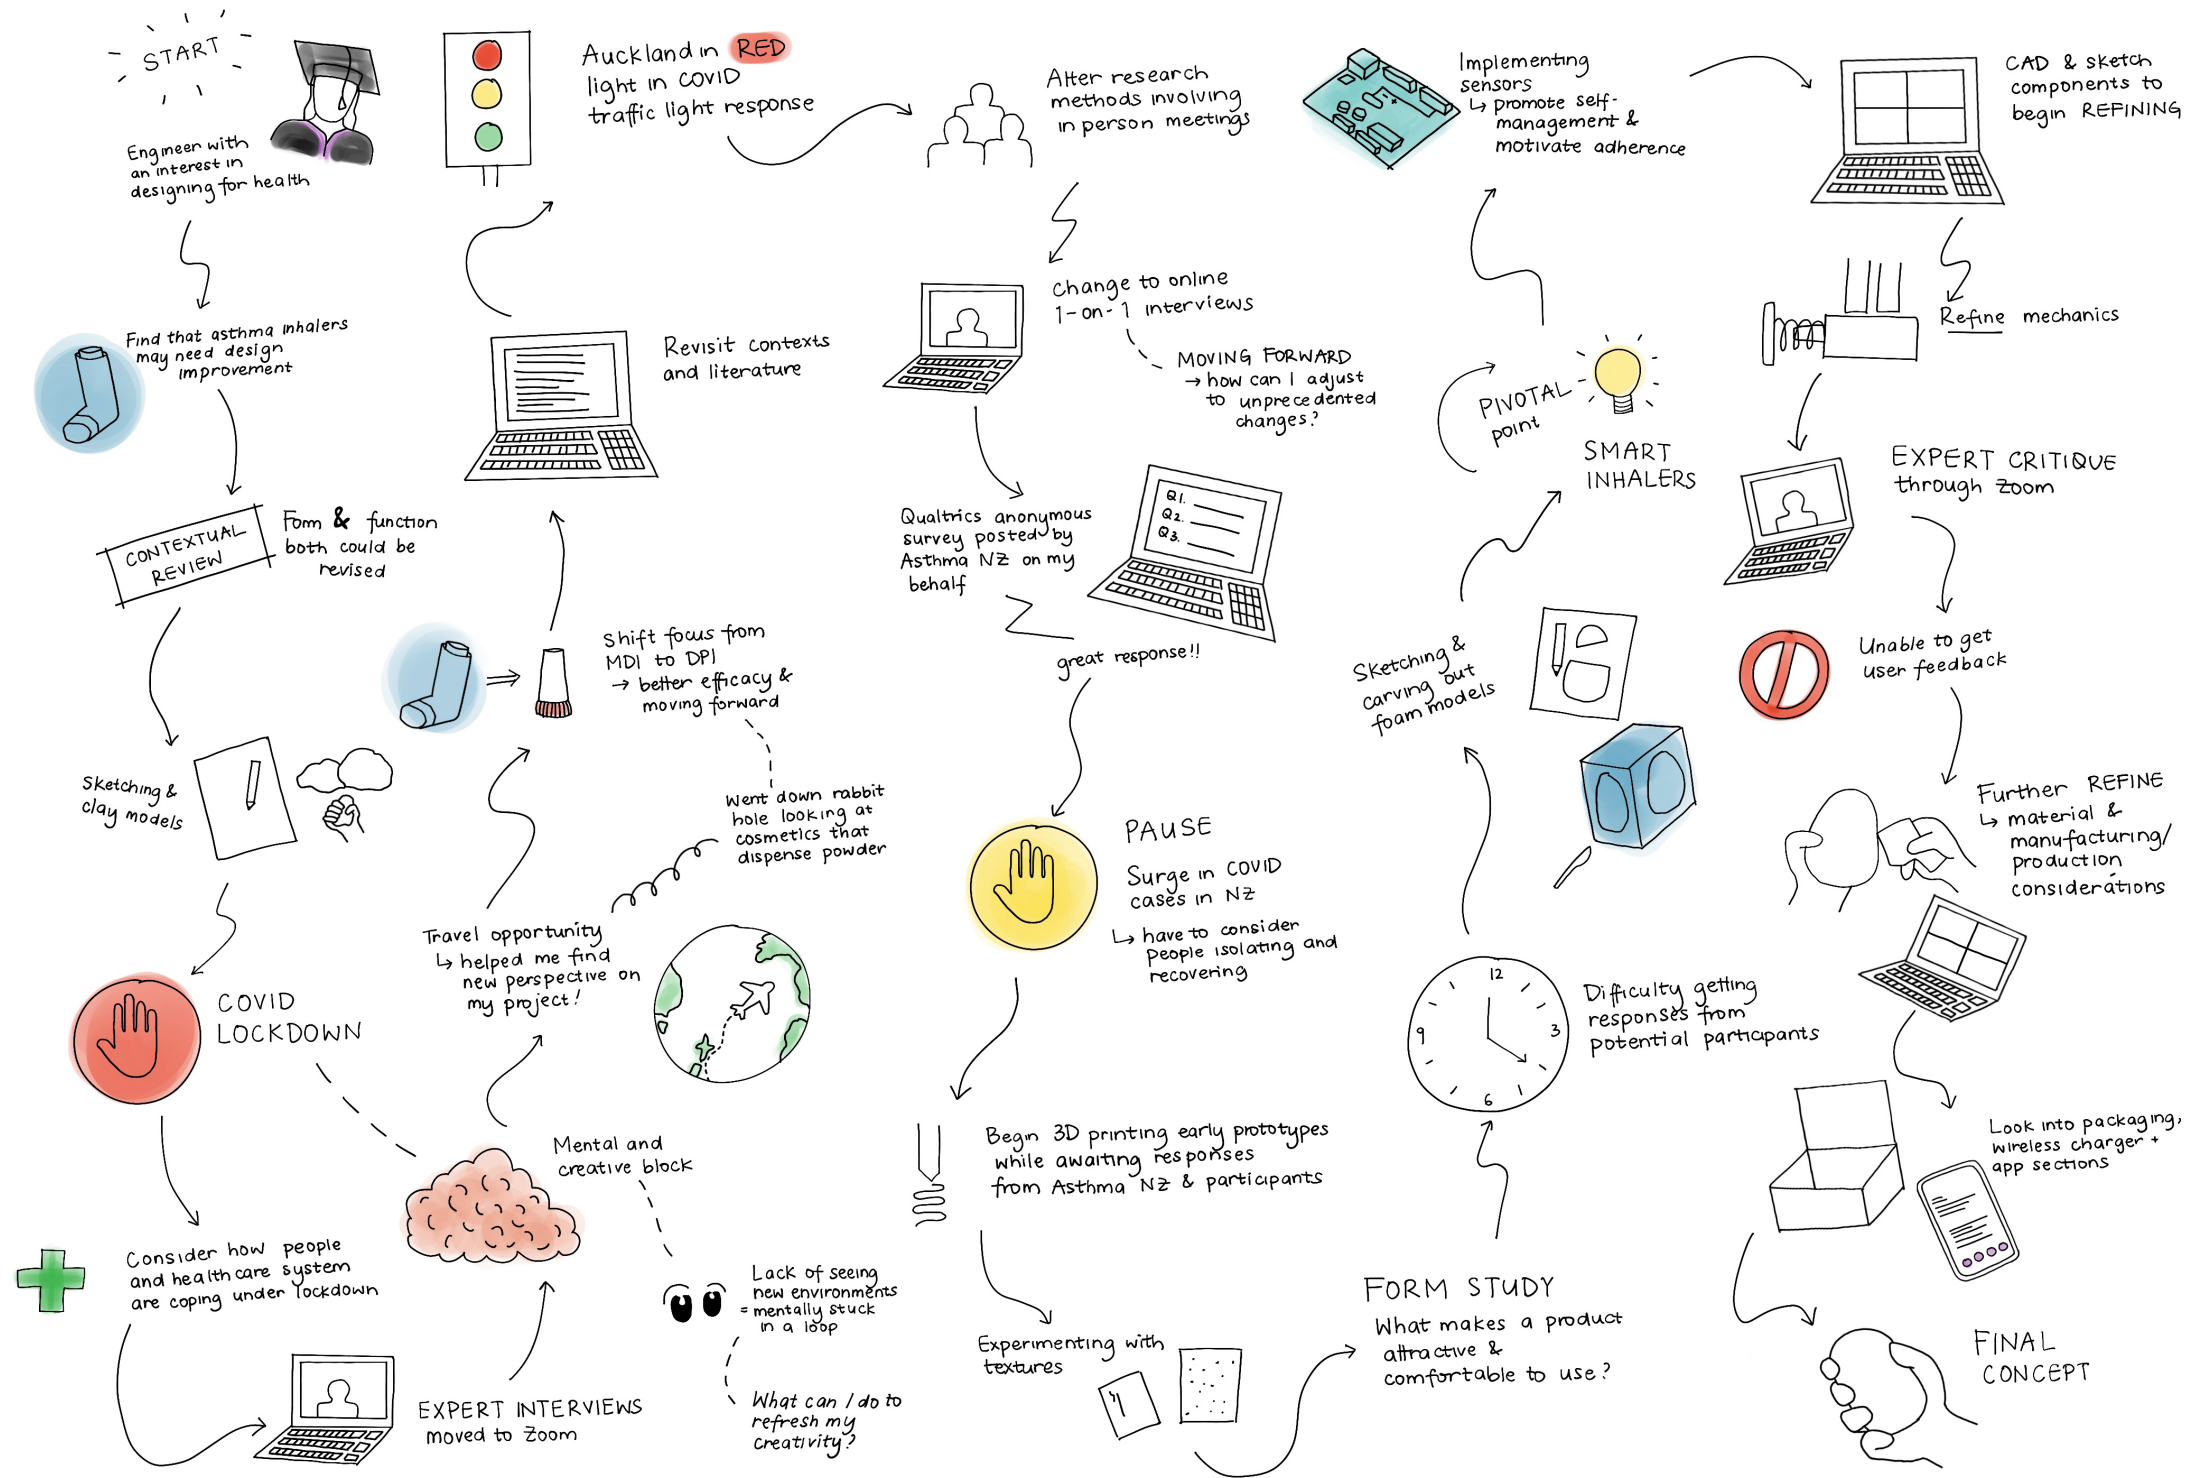 START
Engineer with
an interest in
designing for health
Find that asthma inhalers
may need design
improvement
CONTEXTUAL
REVIEW
Form & function
both could be
revised
Sketching &
clay models
COVID
LOCKDOWN
Consider how people
and healthcare system
are coping under lockdown
EXPERT INTERVIEWS
moved to Zoom
Mental and
creative block
Lack of seeing
new environments
= mentally stuck
in a loop
What can I do to
refresh my
creativity?
Travel opportunity
↳ helped me find
new perspective on
my project!
Went down rabbit
hole looking at
cosmetics that
dispense powder
Shift focus from
MDI to DPI
→ better efficacy &
moving forward
Revisit contexts
and literature
Auckland in RED
light in COVID
traffic light response
Alter research
methods involving
in person meetings
Change to online
1-on-1 interviews
MOVING FORWARD
→ how can I adjust
to unprecedented
changes?
Qualtrics anonymous
survey posted by
Asthma NZ on my
behalf
Q1.
Q2.
Q3.
great response!!
PAUSE
Surge in COVID
cases in NZ
↳ have to consider
people isolating and
recovering
Begin 3D printing early prototypes
while awaiting responses
from Asthma NZ & participants
Experimenting with
textures
FORM STUDY
What makes a product
attractive &
comfortable to use?
12
9
3
6
Difficulty getting
responses from
potential participants
Sketching &
carving out
foam models
SMART
INHALERS
PIVOTAL
point
Implementing
sensors
↳ promote self-
management &
motivate adherence
CAD & sketch
components to
begin REFINING
Refine mechanics
EXPERT CRITIQUE
through Zoom
Unable to get
user feedback
Further REFINE
↳ material &
manufacturing/
production
considerations
Look into packaging,
wireless charger +
app sections
FINAL
CONCEPT